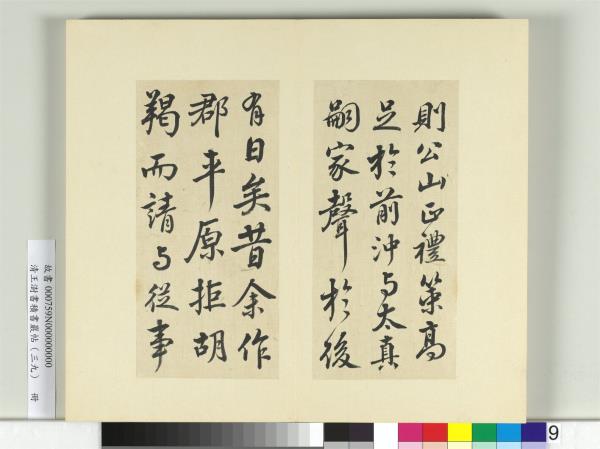 則公山正禮策高
足於前沖与太真
嗣家聲於後
有日矣昔余作
郡平原拒胡
羯而請与從事
故書000759N000000000
清王澍書積書巖帖（三九） 冊
9